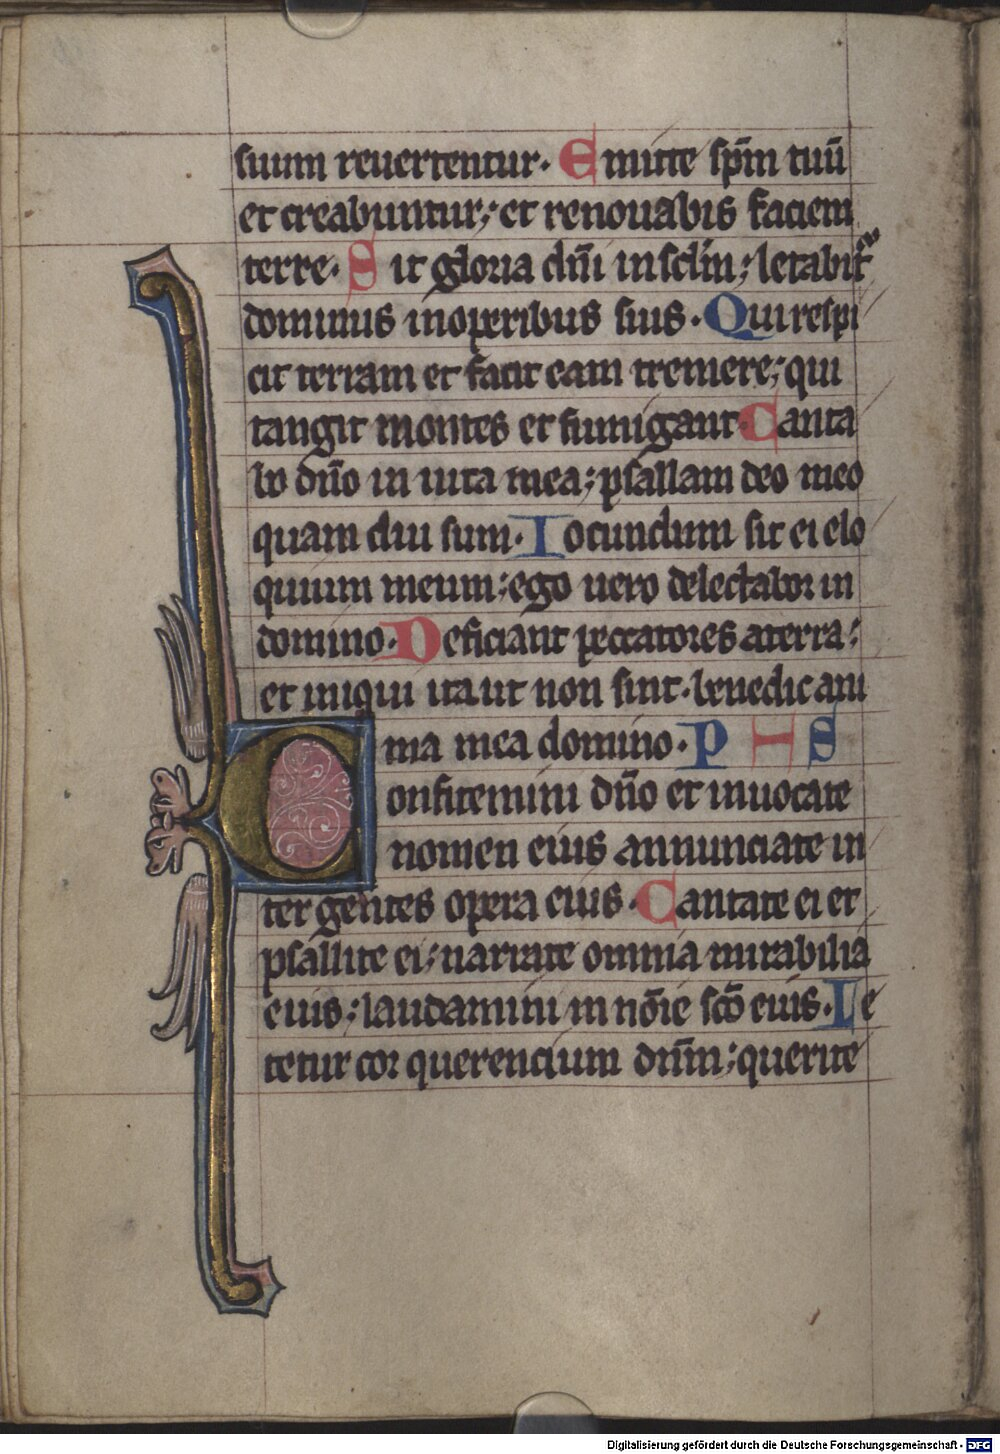 suum reuertentur. Emitte sp̄m tuū
et creabuntur; et renouabis faciem
terre. Sit gloria dn̄i in sc̄lm; letabit᷑
dominus in operibus suis. Qui respi
cit terram et facit eam tremere; qui
tangit montes et fumigant. Canta
bo dn̄o in uita mea; psallam deo meo
quam diu sum. Iocundum sit ei elo
quium meum; ego uero delectabor in
domino. Deficiant peccatores a terra;
et iniqui ita ut non sint. benedic ani
ma mea domino. PHS
Confitemini dn̄o et inuocate
nomen eius annunciate in
ter gentes opera eius. Cantate ei et
psallite ei; narrate omnia mirabilia
eius; laudamini in nōīe scō eius. Le
tetur cor querencium dn̄m; querite
Digitalisierung gefördert durch die Deutsche Forschungsgemeinschaft - DFG